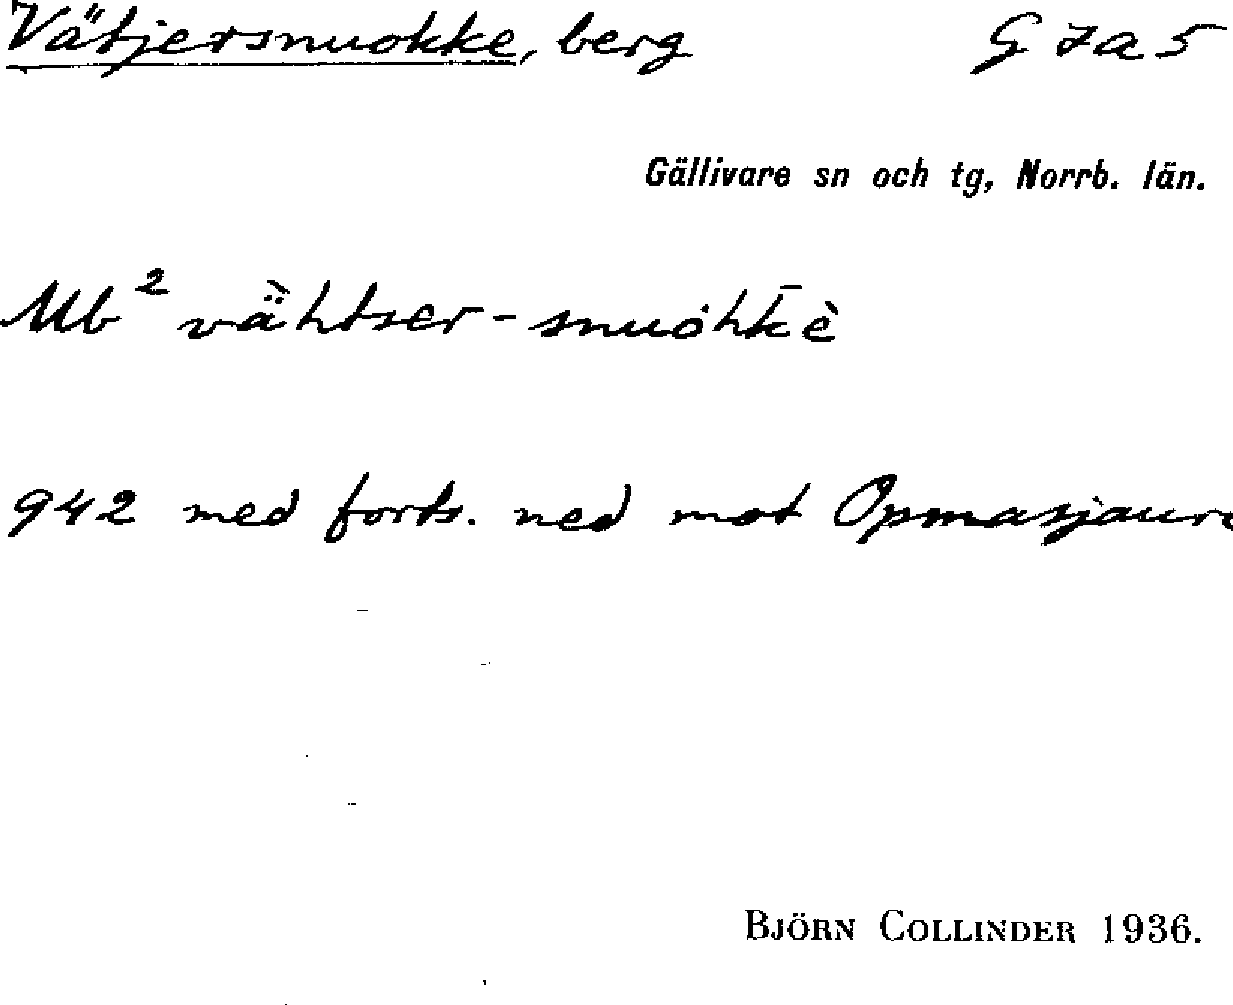 Vätjersnuokke, berg G 7a5
Gällivare sn och tg, Norrb. län.
Mb² vä̀htser-snuȯhk̄è
942 med forts. ned mot Opmasjaure
BJÖRN COLLINDER 1936.